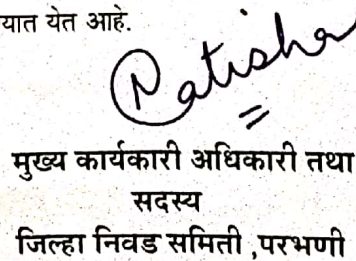 यात येत आहे.
मुख्य कार्यकारी अधिकारी तथा
सदस्य
जिल्हा निवड समिती ,परभणी